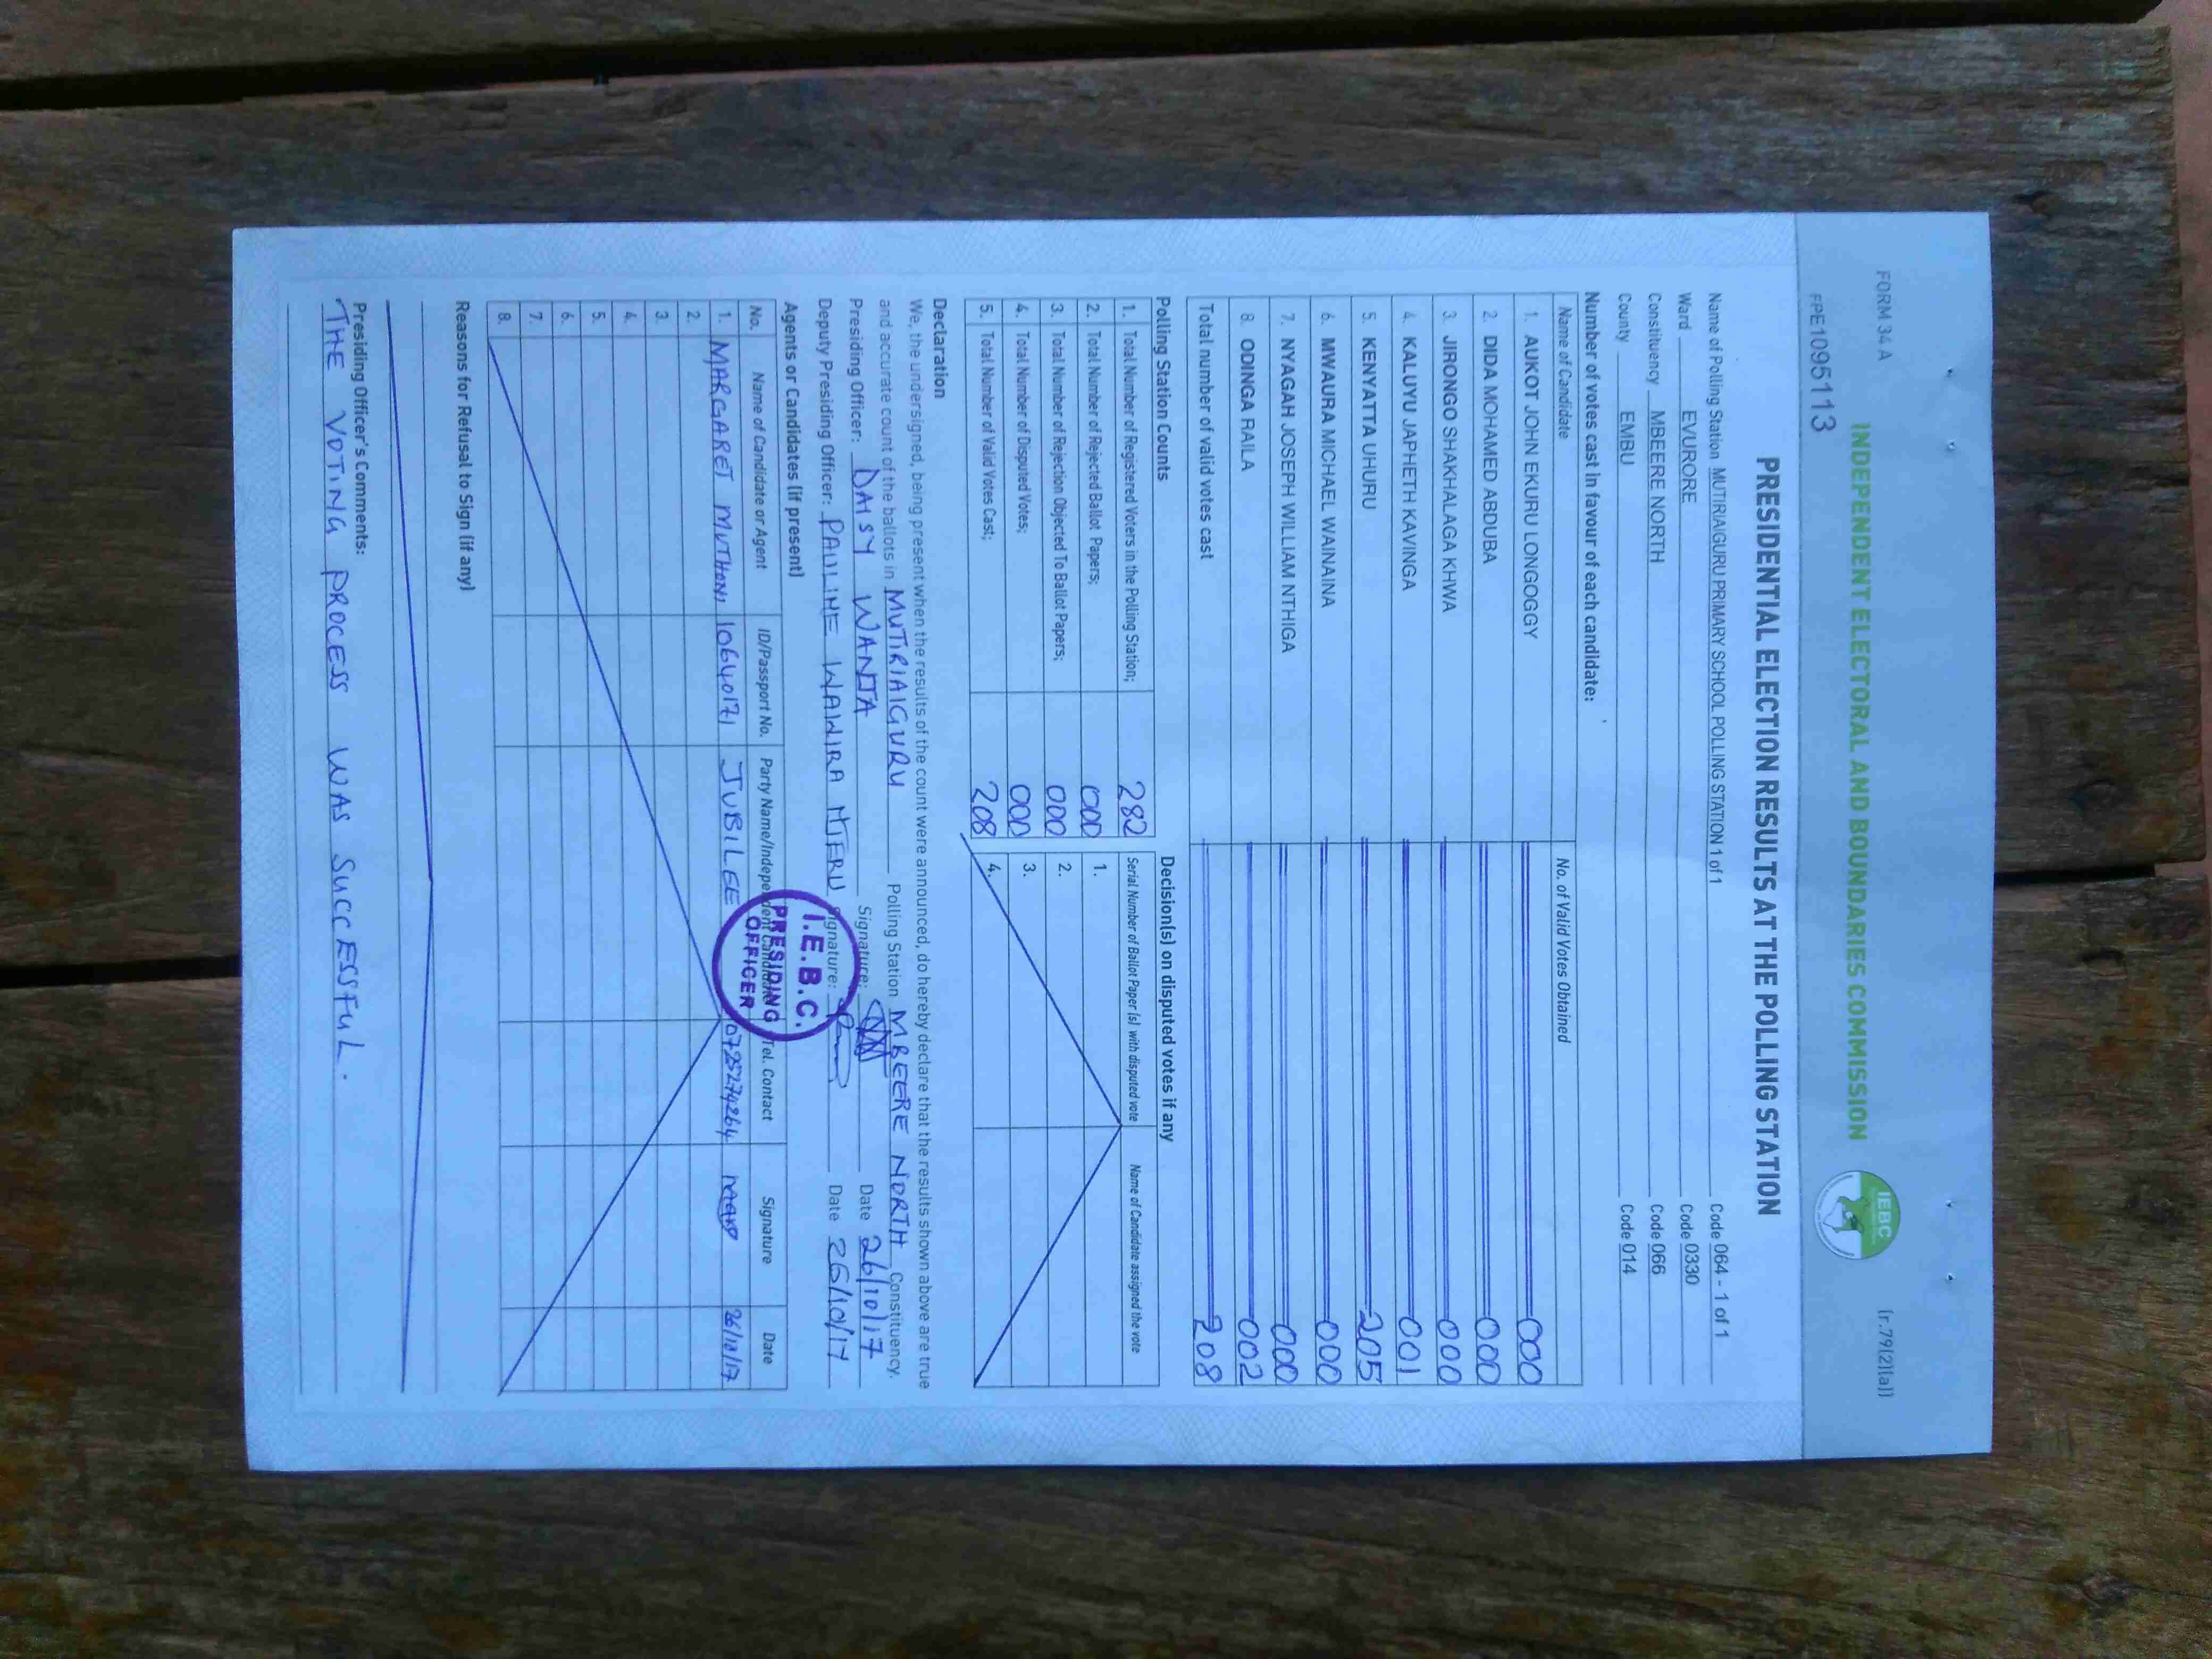 FORM 34 A
INDEPENDENT ELECTORAL AND BOUNDARIES COMMISSION
IEBC
(r.79(2)(a))
PPE1095113
PRESIDENTIAL ELECTION RESULTS AT THE POLLING STATION
Name of Polling Station MUTIRIAIGURU PRIMARY SCHOOL POLLING STATION 1 of 1 Code 064 - 1 of 1
Ward EVURORE Code 0330
Constituency MBEERE NORTH Code 066
County EMBU Code 014
Number of votes cast in favour of each candidate:
Name of Candidate No. of Valid Votes Obtained
1. AUKOT JOHN EKURU LONGOGGY 000
2. DIDA MOHAMED ABDUBA 000
3. JIRONGO SHAKHALAGA KHWA 000
4. KALUYU JAPHETH KAVINGA 001
5. KENYATTA UHURU 205
6. MWAURA MICHAEL WAINAINA 000
7. NYAGAH JOSEPH WILLIAM NTHIGA 000
8. ODINGA RAILA 002
Total number of valid votes cast 208
Polling Station Counts
1. Total Number of Registered Voters in the Polling Station; 282
2. Total Number of Rejected Ballot Papers; 000
3. Total Number of Rejection Objected To Ballot Papers; 000
4. Total Number of Disputed Votes; 000
5. Total Number of Valid Votes Cast; 208
Decision(s) on disputed votes if any
Serial Number of Ballot Paper (s) with disputed vote Name of Candidate assigned the vote
1.
2.
3.
4.
Declaration
We, the undersigned, being present when the results of the count were announced, do hereby declare that the results shown above are true
and accurate count of the ballots in MUTIRIAIGURU Polling Station MBEERE NORTH Constituency.
Presiding Officer: DAISY WANJA Signature: Date 26/10/17
Deputy Presiding Officer: PAULINE WAWIRA NJERU Signature: Date 26/10/17
I.E.B.C.
PRESIDING
OFFICER
Agents or Candidates (if present)
No. Name of Candidate or Agent ID/Passport No. Party Name/Independent Candidate Tel. Contact Signature Date
1. MARGARET MUTHONI 10640171 JUBILEE 0725274264 26/10/17
2.
3.
4.
5.
6.
7.
8.
Reasons for Refusal to Sign (if any)
Presiding Officer's Comments:
THE VOTING PROCESS WAS SUCCESSFUL.